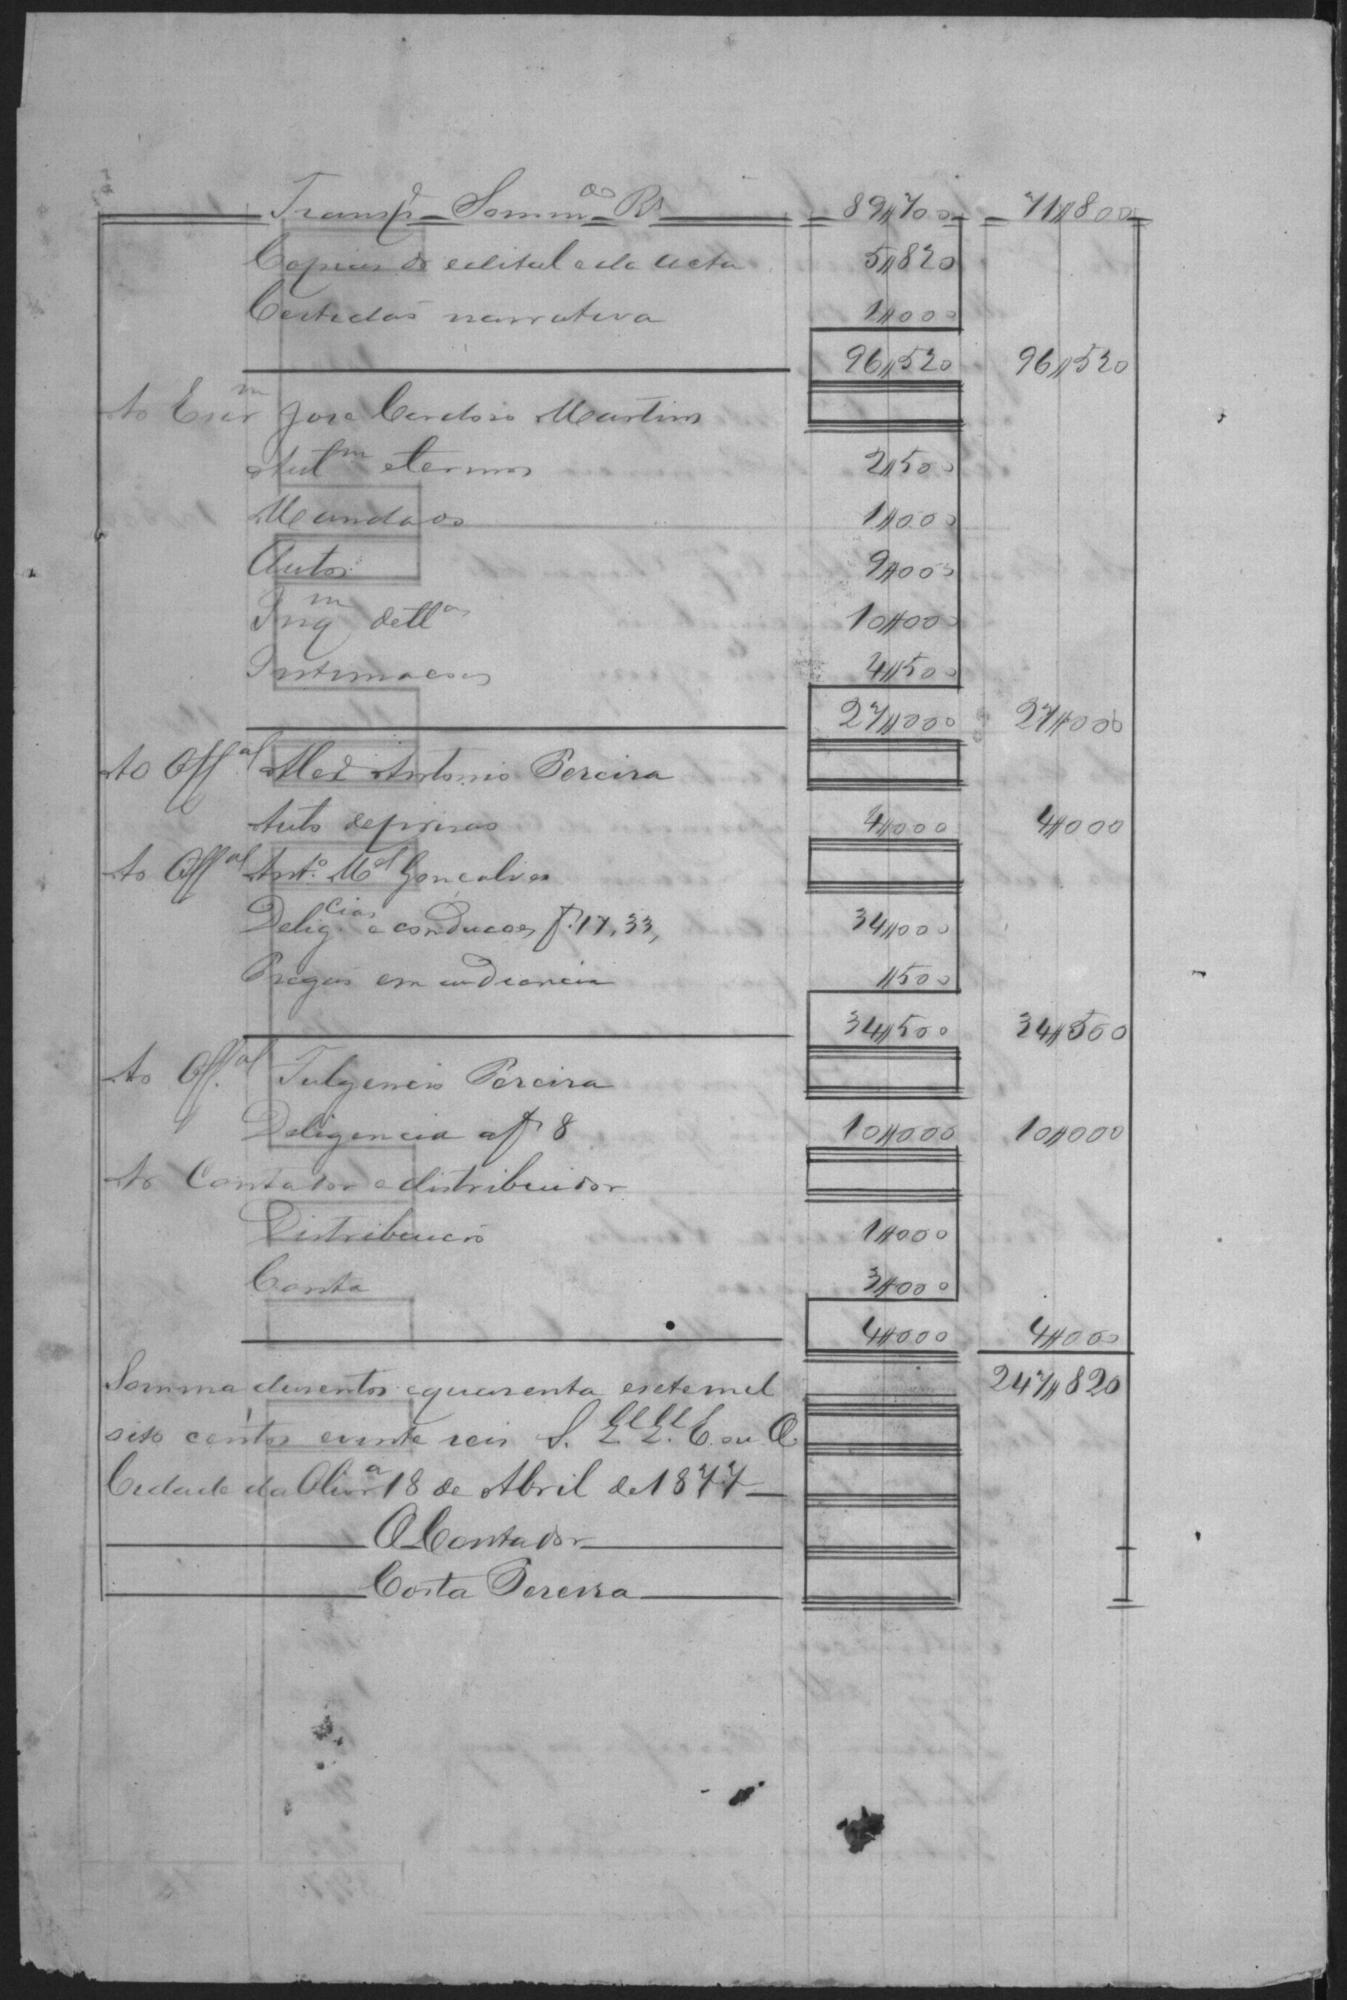 Transp.e Sommas Rs 89$700 71$800
Copias do edital e da acta 5$820
Certidaõ narrativa 1$000
96$520 96$520
Ao Escrm José Cardoso Martins
Autm e termos 2$500
Mandados 1$000
Autos 9$000
Inqm de tta 10$000
Intimacoes 4$500
27$000 27$000
Ao Offal Antonio Pereira
Auto de prisaõ 4$000 4$000
Ao Offal Anto. Mel Gonçalves
Deligcias e conducoes f. 17, 33, 34$000
Pregaõ em audiencia $500
34$500 34$500
Ao Off.al Fulgencio Pereira
Deligencia a f 8 10$000 10$000
Ao Contador e distribuidor
Distribuicaõ 1$000
Conta 3$000
4$000 4$000
Somma dusentos e quarenta e sete mil 247$820
oito centos e vinte reis S. E. ou O.
Cidade da Olivra 18 de Abril de 1877
O Contador
Costa Pereira